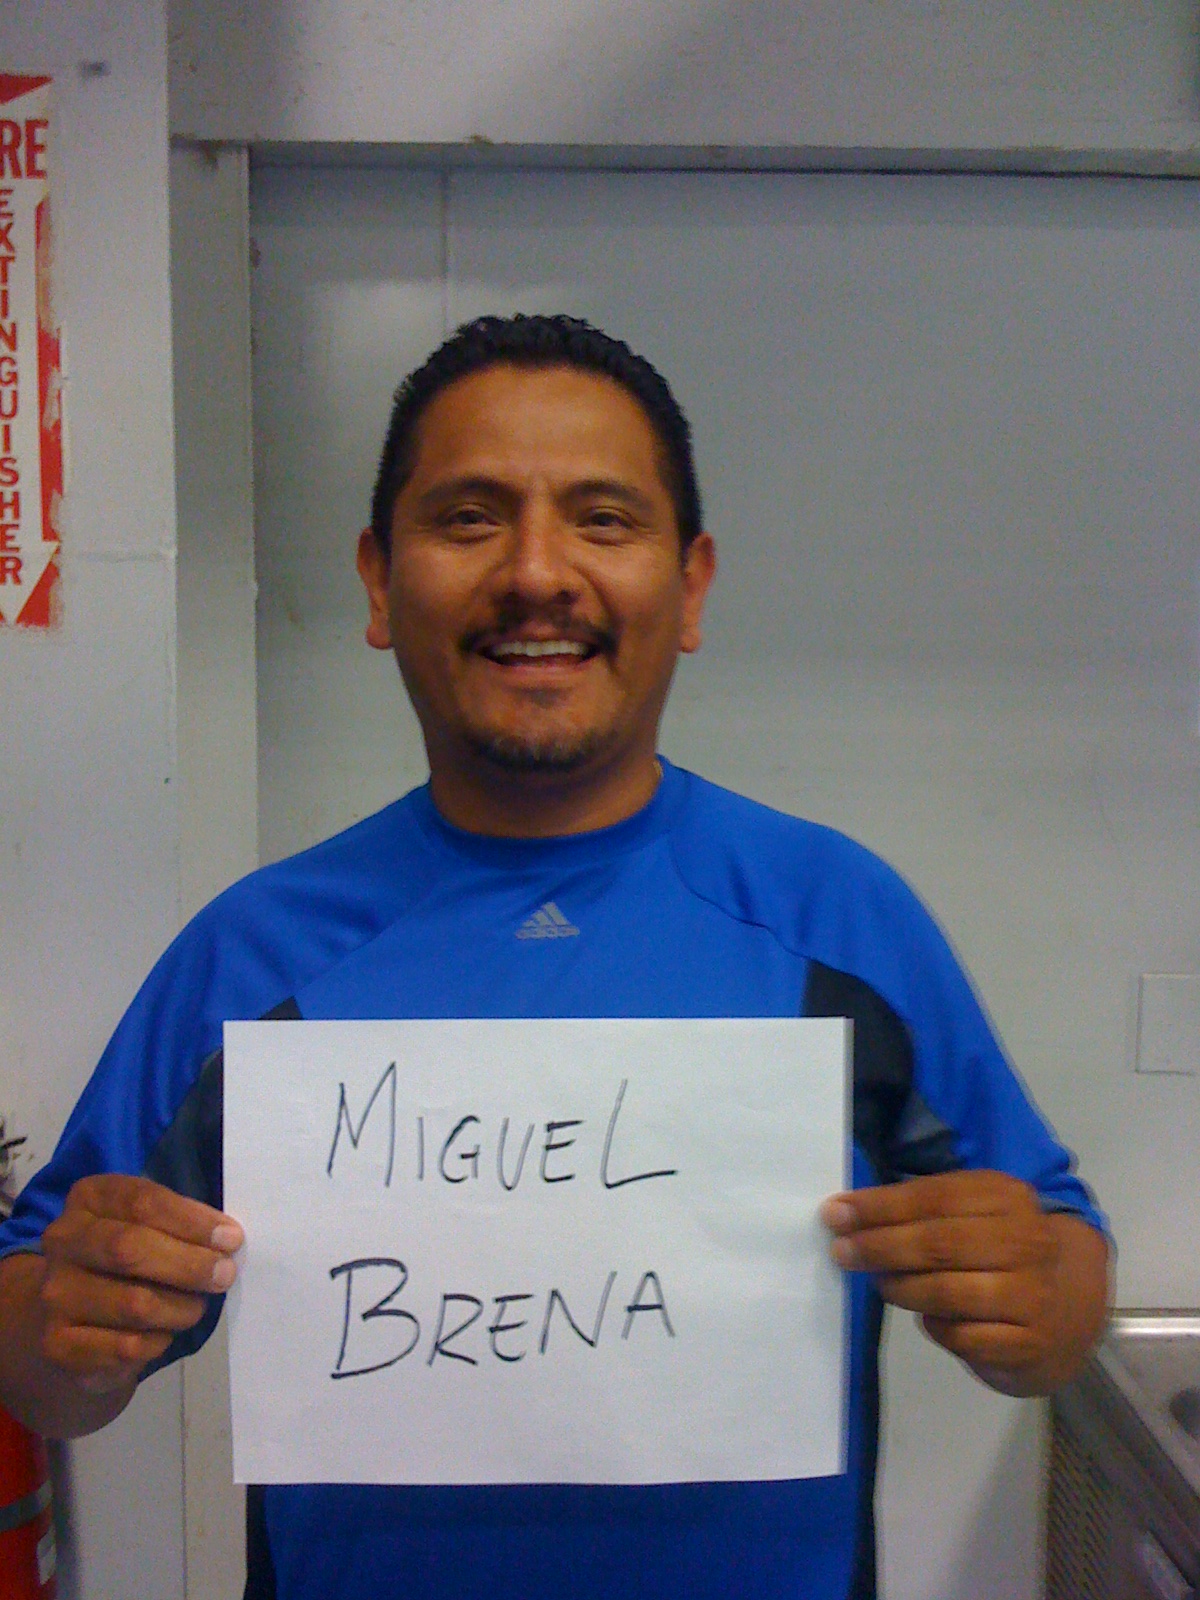 RE
EXTINGUISHER
adidas
MIGUEL
BRENA